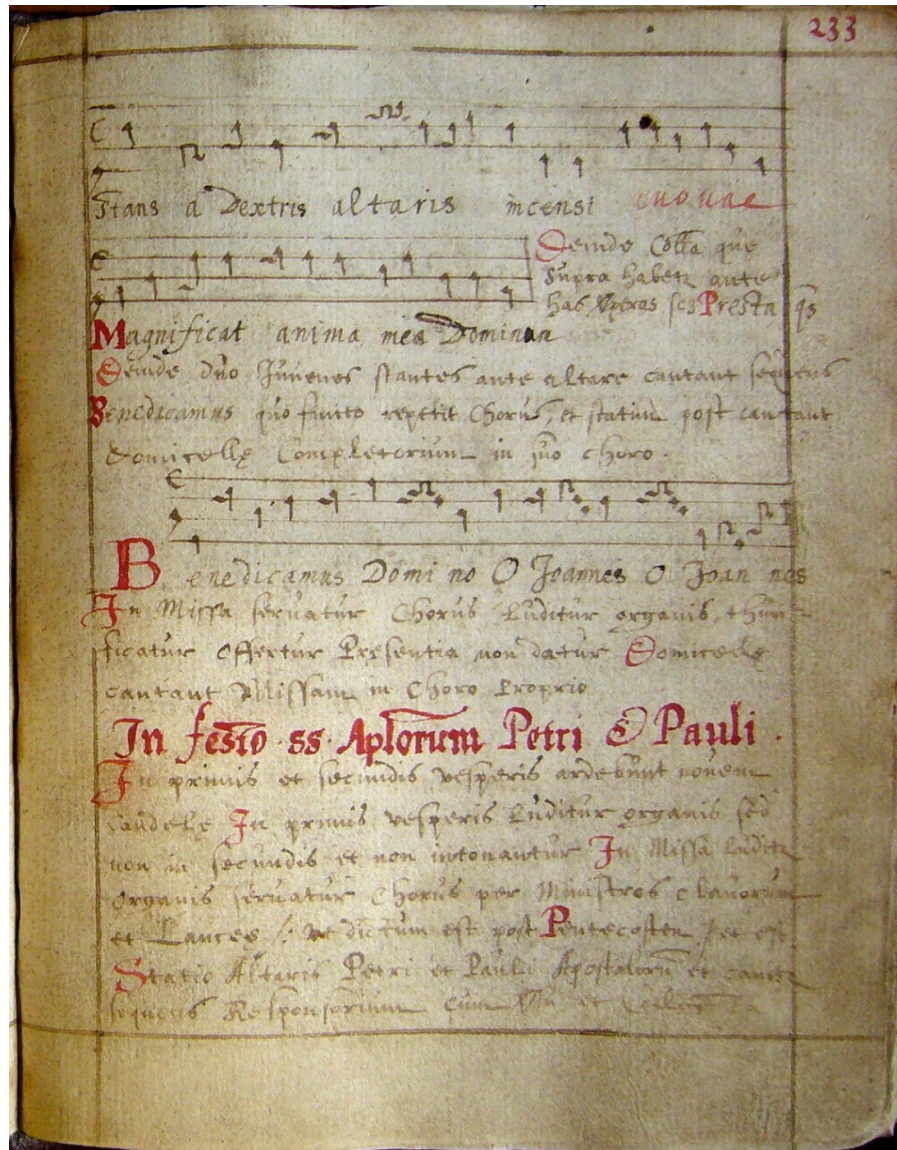 233
Stans a Dextris altaris incensi euouae
Deinde Colla que
supra habetz ante
has vperas scs Presta qs
Magnificat anima mea Dominum
Deinde duo Juuenes stantes ante altare cantant sequens
Benedicamus quo finito repetit Chorus, et statim post cantant
Domicelle Completorium in suo choro.
Benedicamus Domi no O Joannes O Joan nes
In Missa seruatur Chorus Luditur organis, thuri-
ficatur Offertur Presentia non datur Domicelle
cantant Missam in Choro proprio
In festo ss Aplorum Petri & Pauli.
In primis et secundis vesperis ardebunt nouem
Candele In primis vesperis Luditur organis sed
non in secundis et non intonantur In Missa luditz
Organis seruatur Chorus per Ministros clauorum
et Lances, ut dictum est post Pentecosten, et est
Statio Altaris Petri et Pauli Apostolorum et cantz
sequens Responsorium cum et